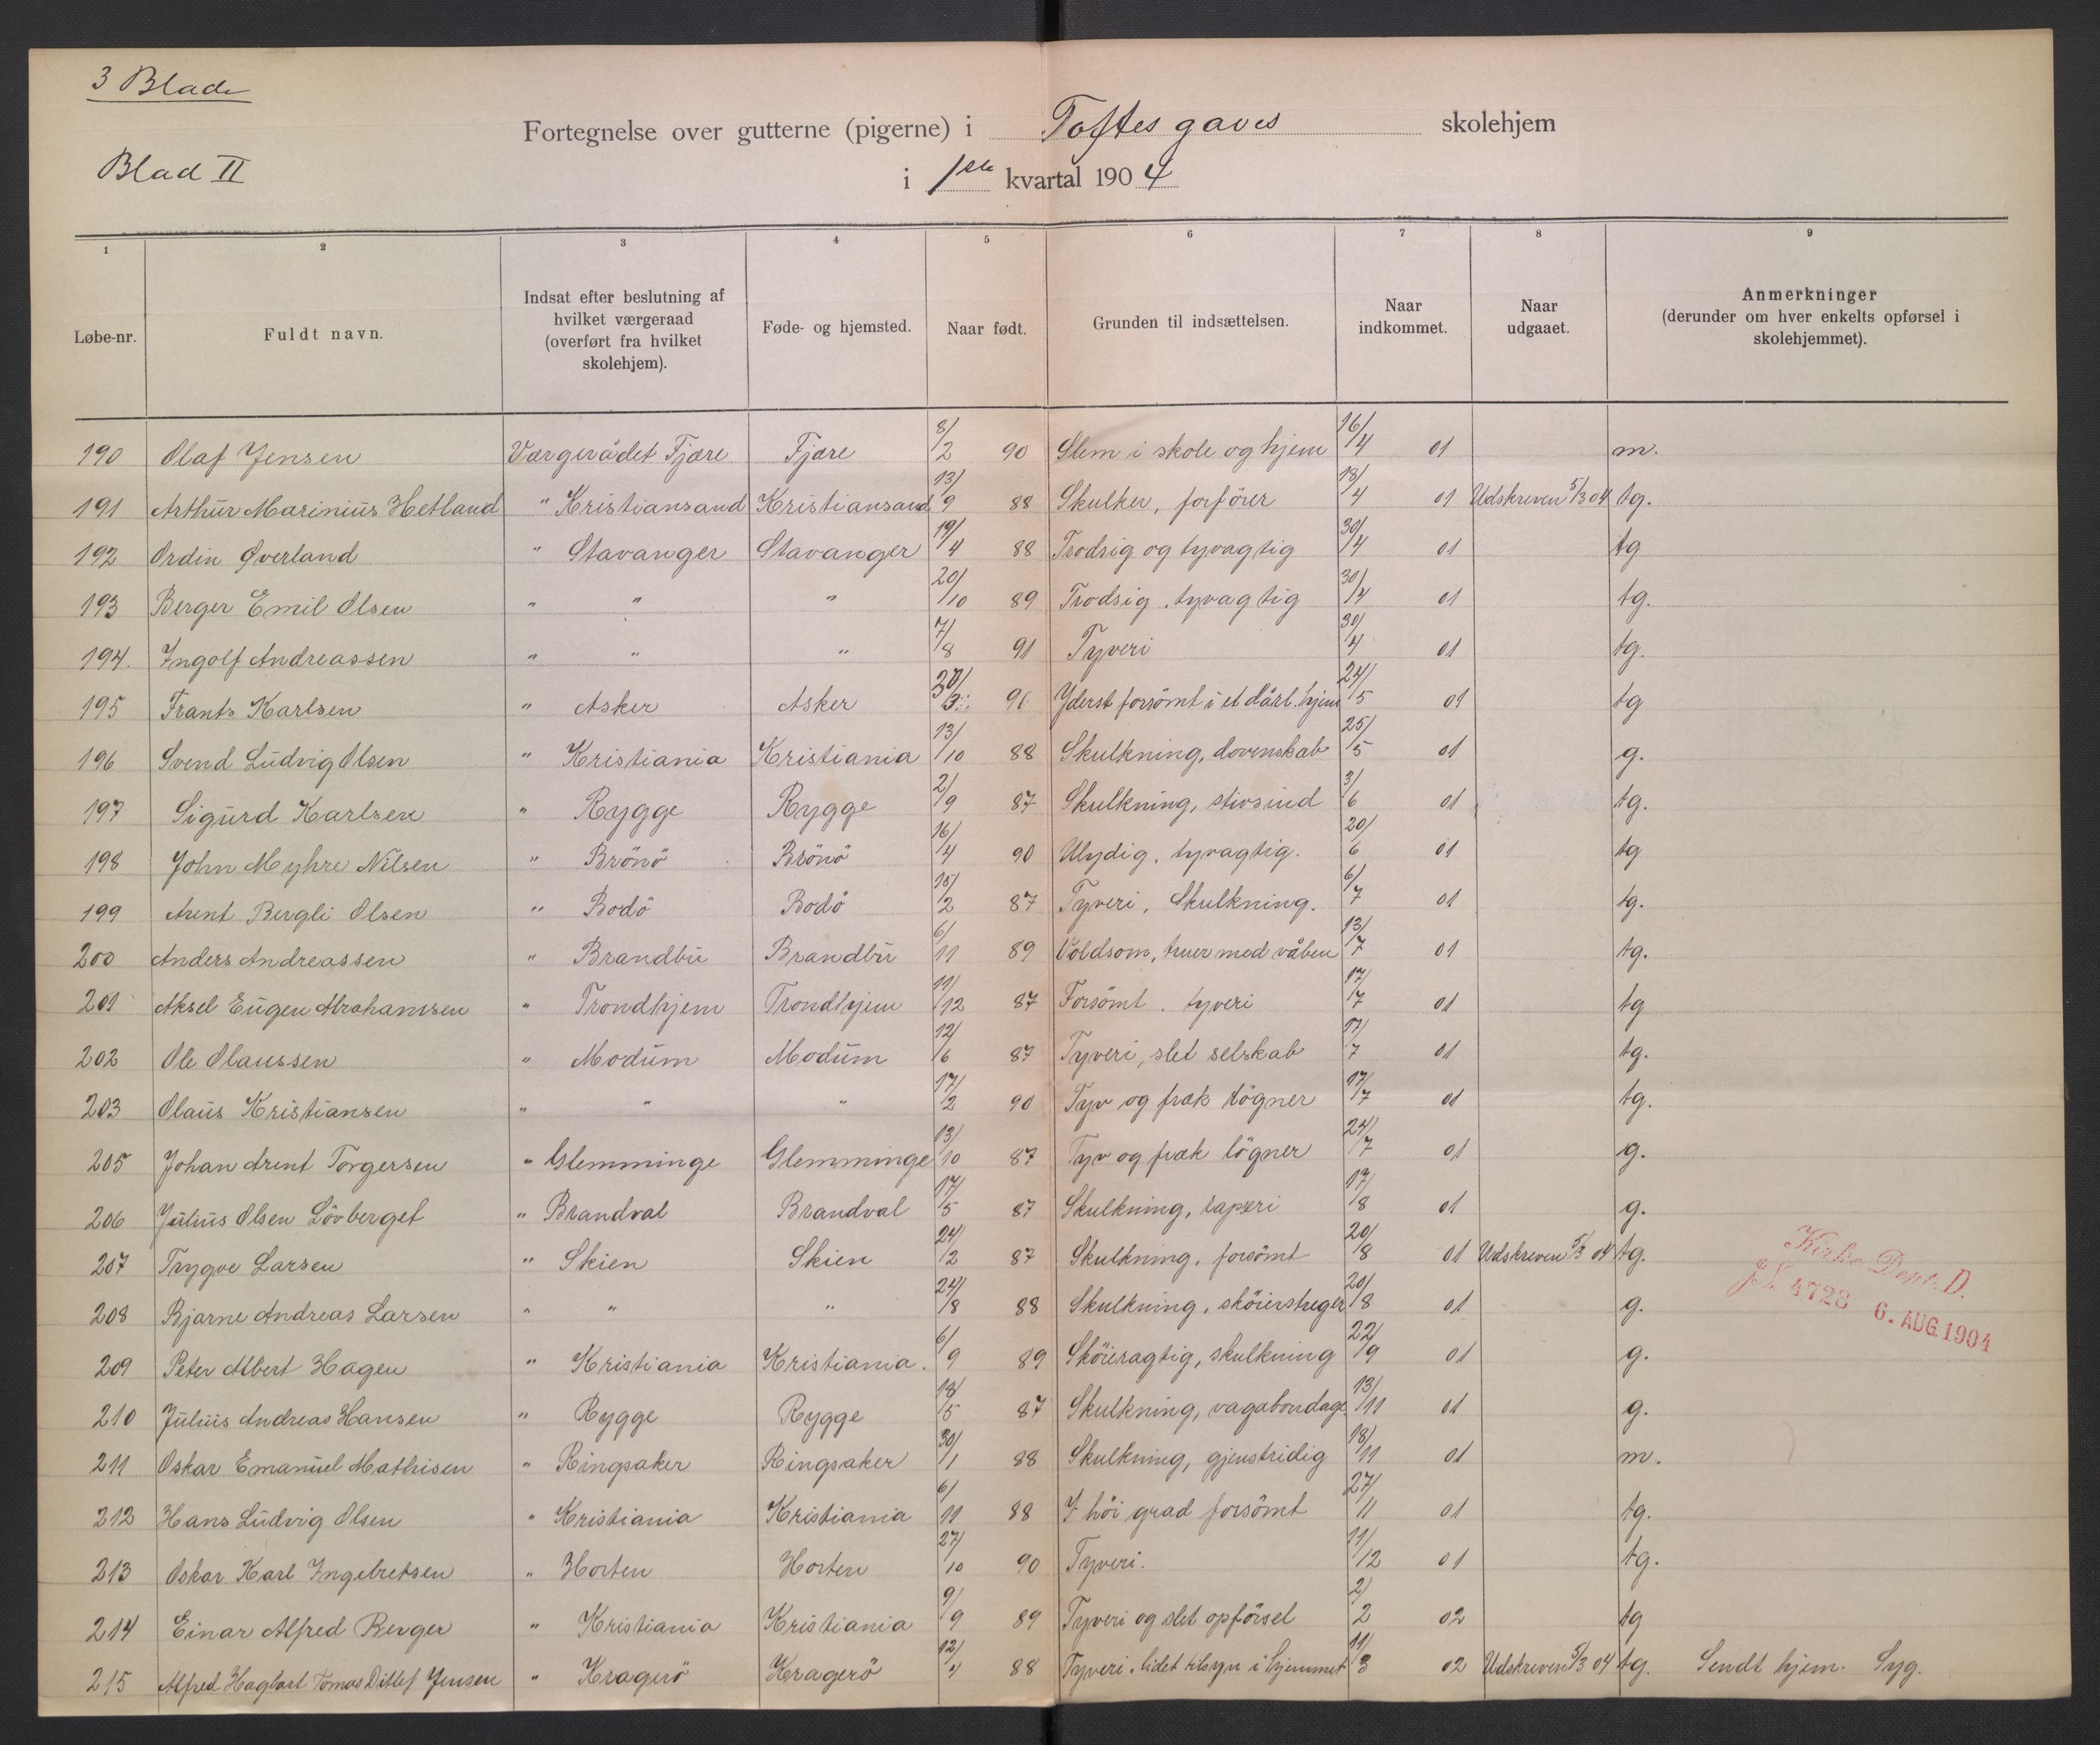 3 Blade
Fortegnelse over gutterne (pigerne) i Toftes gaves skolehjem
Blad II
i 1ste kvartal 1904
1 2 3 4 5 6 7 8 9
Løbe-nr. | Fuldt navn. | Indsat efter beslutning af hvilket værgeraad (overført fra hvilket skolehjem). | Føde- og hjemsted. | Naar født. | Grunden til indsættelsen. | Naar indkommet. | Naar udgaaet. | Anmerkninger (derunder om hver enkelts opførsel i skolehjemmet).
190 Olaf Jensen Værgerådet Fjære Fjære 8/2 90 Slem i skole og hjem 16/4 01 m.
191 Arthur Marinius Hetland " Kristiansand Kristiansand 13/9 88 Skulker, forfører 18/4 01 Udskreven 5/3 04 tg.
192 Ordin Øverland " Stavanger Stavanger 19/4 88 Trodsig og tyvagtig 30/4 01 tg
193 Berger Emil Olsen " " " 20/10 89 Trodsig. tyvagtig 30/4 01 tg.
194. Ingolf Andreassen " " " 7/8 91 Tyveri 30/4 01 tg.
195 Frants Karlsen " Asker Asker 30/3 91 Yderst forsömt i et dårl. hjem 24/5 01 tg
196 Svend Ludvig Olsen " Kristiania Kristiania 13/10 88 Skulkning, dovenskab 25/5 01 g.
197 Sigurd Karlsen " Rygge Rygge 2/9 87 Skulkning, stivsind 3/6 01 tg.
198 John Myhre Nilsen " Brönö Brönö 16/4 90 Ulydig, tyvagtig. 20/6 01 tg
199 Arent Bergli Olsen " Bodö Bodö 15/2 87 Tyveri, Skulkning. 6/7 01 tg.
200 Anders Andreassen " Brandbu Brandbu 6/11 89 Voldsom, truer med våben 13/7 01 tg.
201 Aksel Eugen Abrahamsen " Trondhjem Trondhjem 11/12 87 Forsömt. tyveri 17/7 01 tg
202 Ole Olaussen " Modum Modum 12/6 87 Tyveri, slet selskab 17/7 01 tg.
203 Olaus Kristiansen " " " 17/2 90 Tyv og fræk lögner 17/7 01 tg.
205 Johan Arent Torgersen " Glemminge Glemminge 13/10 87 Tyv og fræk lögner 24/7 01 g.
206 Julius Olsen Lövberget " Brandval Brandval 17/5 87 Skulkning, raperi 17/8 01 g.
207 Trygve Larsen " Skien Skien 24/2 87 Skulkning, forsömt 20/8 01 Udskreven 5/3 04 tg.
208 Bjarne Andreas Larsen " " " 24/8 88 Skulkning, sköierstreger 20/8 01 g.
Kirke-Dept. D.
J.N. 4728 6. AUG. 1904
209 Peter Albert Hagen " Kristiania Kristiania. 6/9 89 Sköieragtig, skulkning 22/9 01 g.
210 Julius Andreas Hansen " Rygge Rygge 18/5 87 Skulkning, vagabondage 13/11 01 g.
211 Oskar Emanuel Mathisen " Ringsaker Ringsaker 30/1 88 Skulkning, gjenstridig 18/11 01 m.
212 Hans Ludvig Olsen " Kristiania Kristiania 6/11 88 I höi grad forsömt 27/11 01 tg.
213 Oskar Karl Ingebretsen " Horten Horten 27/10 90 Tyveri. 11/12 01 tg.
214 Einar Alfred Berger " Kristiania Kristiania 9/9 89 Tyveri og slet opförsel 2/2 02 tg
215 Alfred Hagbart Tomas Ditlef Jensen " Kragerö Kragerö 12/4 88 Tyveri. lidet tilsyn i hjemmet 11/3 02 Udskreven 5/3 04 tg. Sendt hjem. Syg.